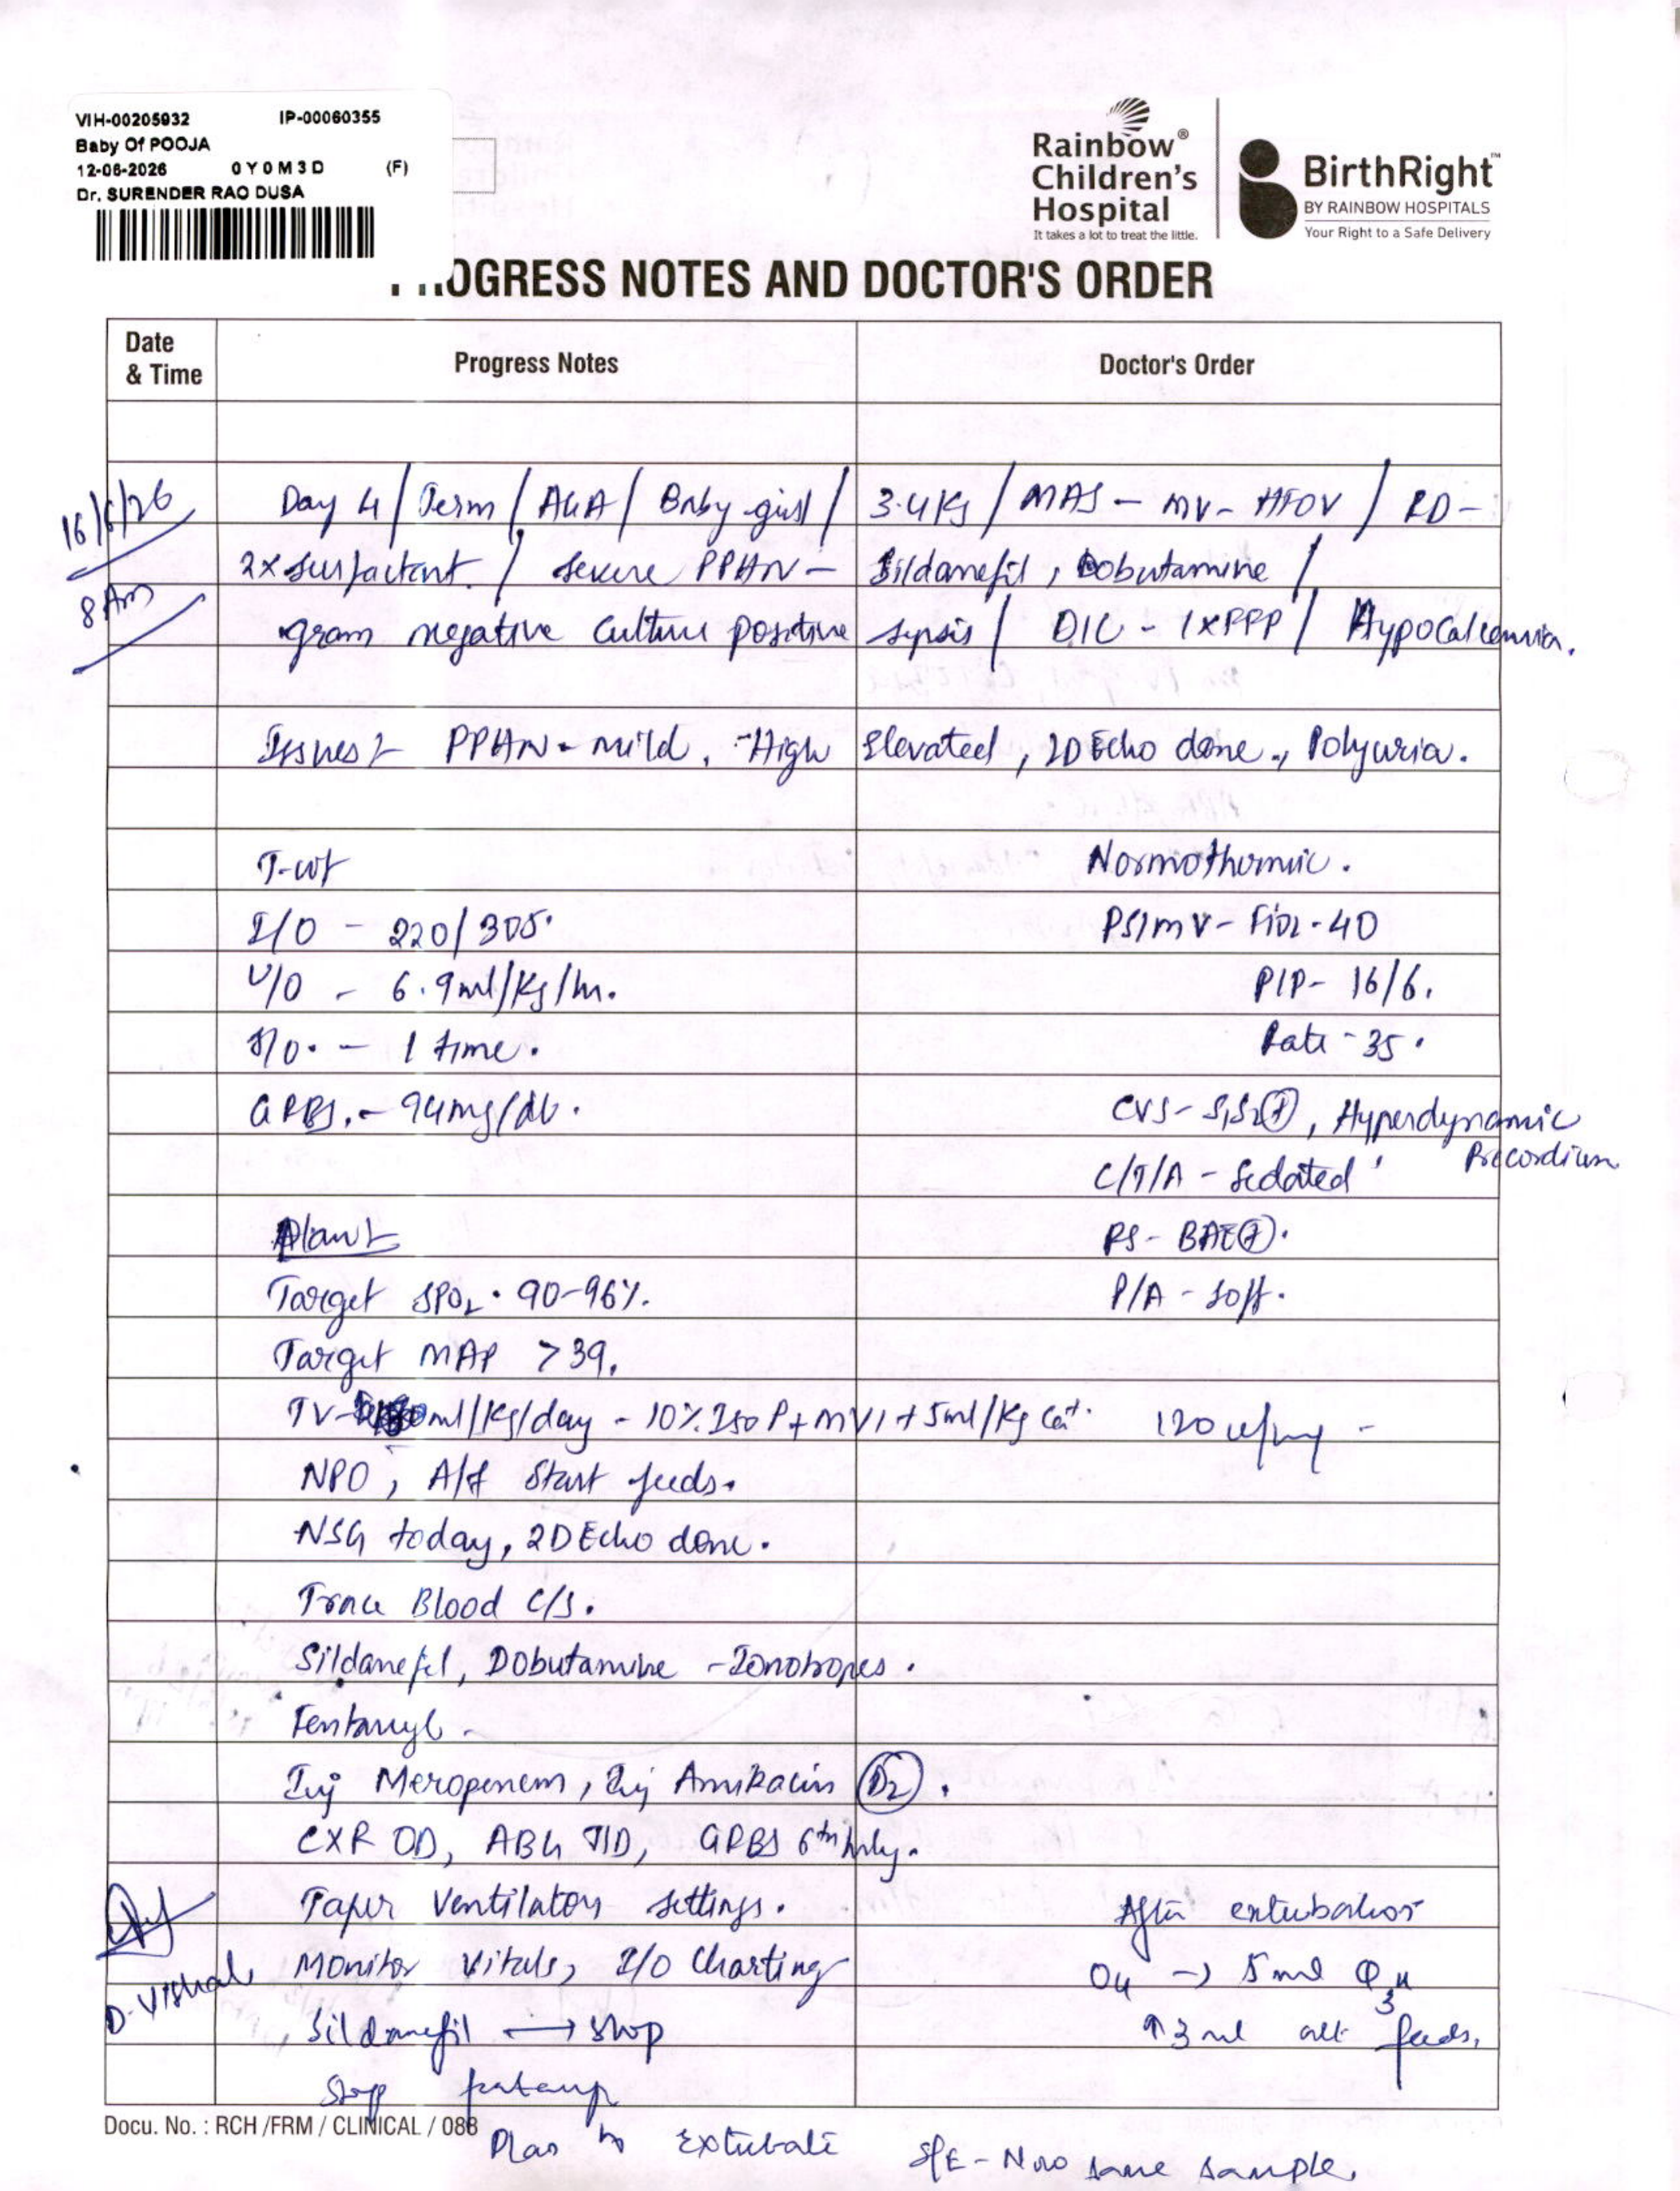 VIH-00205932 IP-00060355
Baby Of POOJA
12-06-2026 0Y0M3D (F)
Dr. SURENDER RAO DUSA
Rainbow®
Children's
Hospital
It takes a lot to treat the little.
BirthRight™
BY RAINBOW HOSPITALS
Your Right to a Safe Delivery
OGRESS NOTES AND DOCTOR'S ORDER
Date & Time Progress Notes Doctor's Order
16/6/26
8 Am
Day 4 / Term / AGA / Baby girl / 3.4 Kg / MAS - MV - HFOV / RD -
2x surfactant. / Severe PPHN - Sildanefil, Dobutamine /
gram negative culture positive sepsis / DIC - 1xFFP / Hypocalcemia.
Issues:- PPHN - mild, High Elevated, 2D Echo done., Polyuria.
T-wt Normothermic.
I/O - 220/305. PSIMV - FiO2 - 40
U/O - 6.9ml/Kg/hr. PIP - 16/6.
S/O. - 1 time. Rate - 35.
GRBS. - 94mg/dl. CVS - S1S2⊕, Hyperdynamic Precordium
C/T/A - Sedated
Plan:- RS - BAE⊕.
Target SPO2 - 90-96%. P/A - Soft.
Target MAP >39.
TV- ml/Kg/day - 10% Iso P + MVI + 5ml/Kg Ca+. 120
NPO, A/f Start feeds.
NSG today, 2D Echo done.
Trace Blood C/S.
Sildanefil, Dobutamine - Ionotropes.
Fentanyl.
Inj Meropenem, Inj Amikacin (D2).
CXR OD, ABG TID, GRBS 6th hrly.
Taper Ventilatory settings. After extubation
Monitor Vitals, I/O Charting OG → 5ml Q3H
Sildanefil → Stop ↑3ml alt feeds.
D. Vishal
Stop
Docu. No. : RCH /FRM / CLINICAL / 088
Plan to Extubate S/E - same sample.